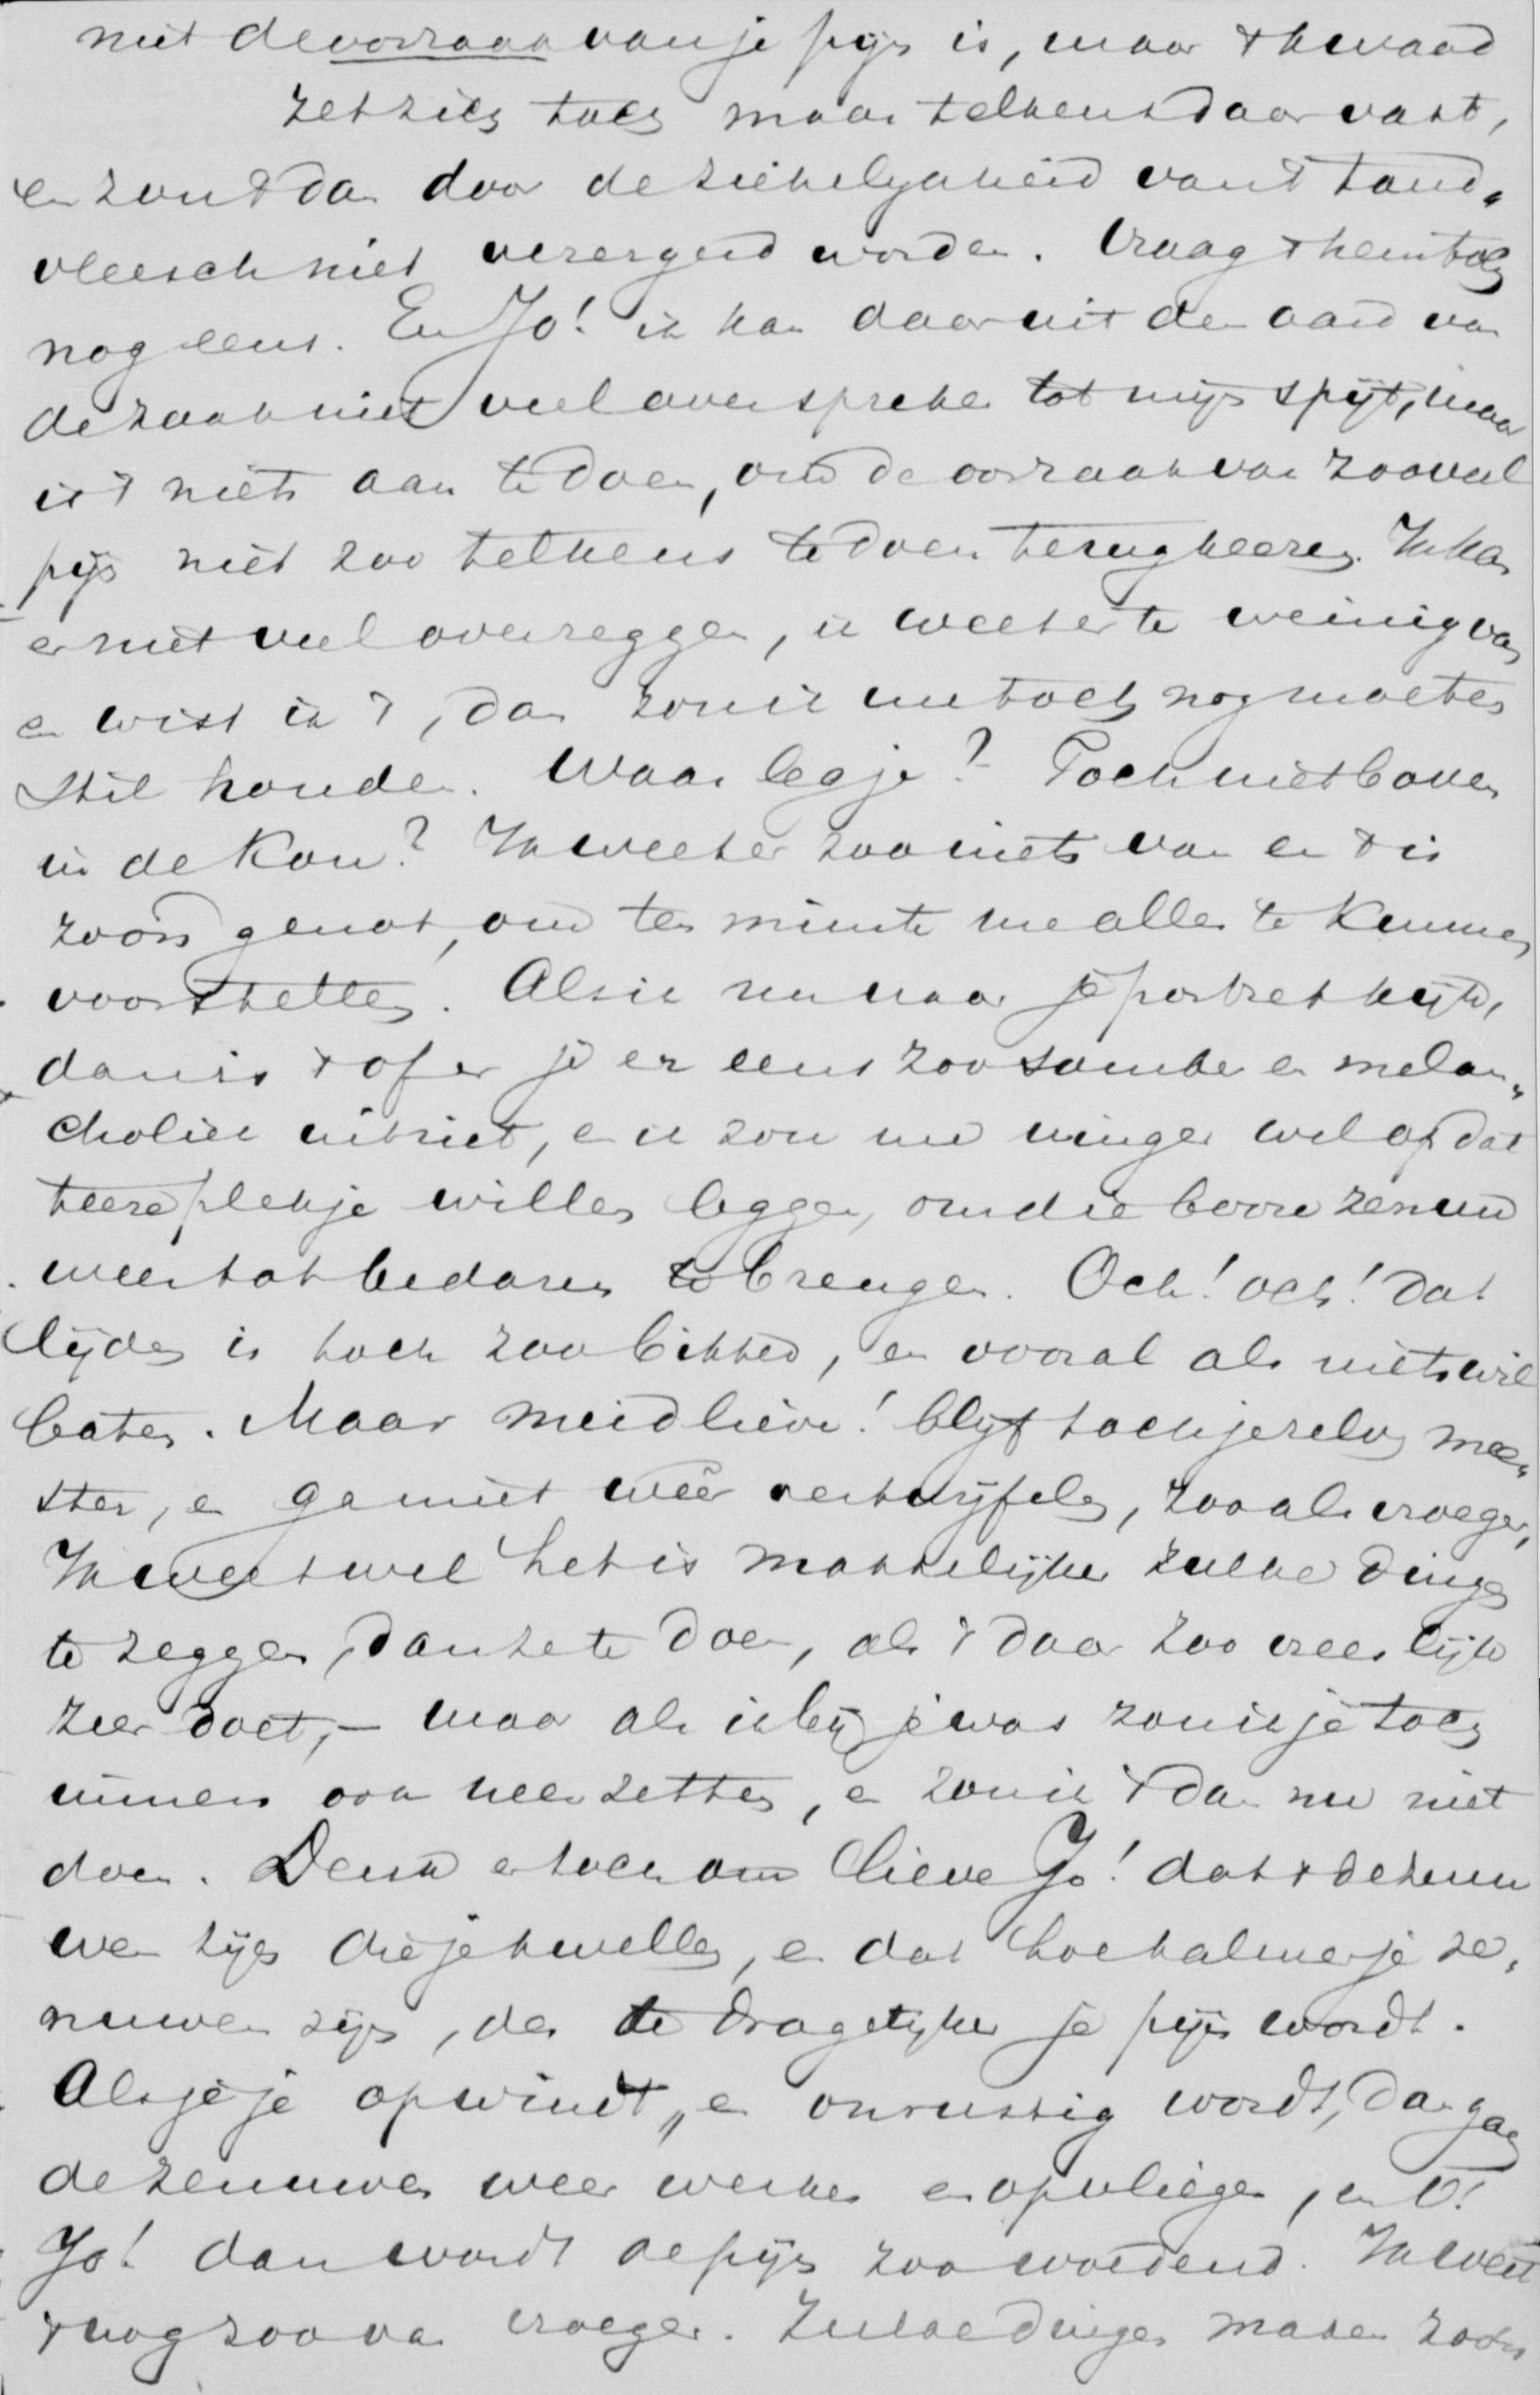 niet de oorzaak van je pijn is, maar 't kwaad
zet zich toch maar telkens daar vast,
en zou 't dan door de ziekelijkheid van 't tand„
vleesch niet verergerd worden. Vraag 't hem toch
nog eens. En Jo! ik kan daar uit den aard van
de zaak niet veel over spreken tot mijn spijt, maar
is 't niets aan te doen, om de oorzaak van zooveel
pijn niet zoo telkens te doen terugkeeren. Ik kan
er niet veel over zeggen, ik weet er te weinig van
en wist ik 't, dan zou ik me toch nog moeten
stil houden. Waar leg je? Toch niet boven
in de kou? Ik weet er zoo niets van en 't is
zoo'n genot, om ten minste me alles te kunnen
voorstellen. Als ik nu naar je portret kijk,
dan is 't of er je er eens zoo somber en melan„
choliek uitziet, en ik zou mijn vinger wel op dat
teere plekje willen leggen, om die booze zenuw
weer tot bedaren te brengen. Och! och! dat
lijden is toch zoo bitter, en vooral als niets wil
baten. Maar meid lieve! blijf toch jezelve mee„
ster, en ga niet weêr vertwijfelen, zooals vroeger,
Ik weet wel het is makkelijker zulke dingen
te zeggen, dan ze te doen, als 't daar zoo vreeslijk
zeer doet, – maar als ik bij je was zou ik je toch
immers ook neerzetten, en zou ik 't dan nu niet
doen. Denk er toch om lieve Jo! dat 't de zenu
wen zijn die je kwellen, en dat hoe kalmer je ze„
nuwen zijn, des te dragelijker je pijn wordt.
Als je je opwindt, en onrustig wordt, dan gaan
de zenuwen weer werken en opvliegen, en O!
Jo! dan wordt de pijn zoo woedend. Ik weet
't nog zoo van vroeger. Zulke dingen maken zoo'n